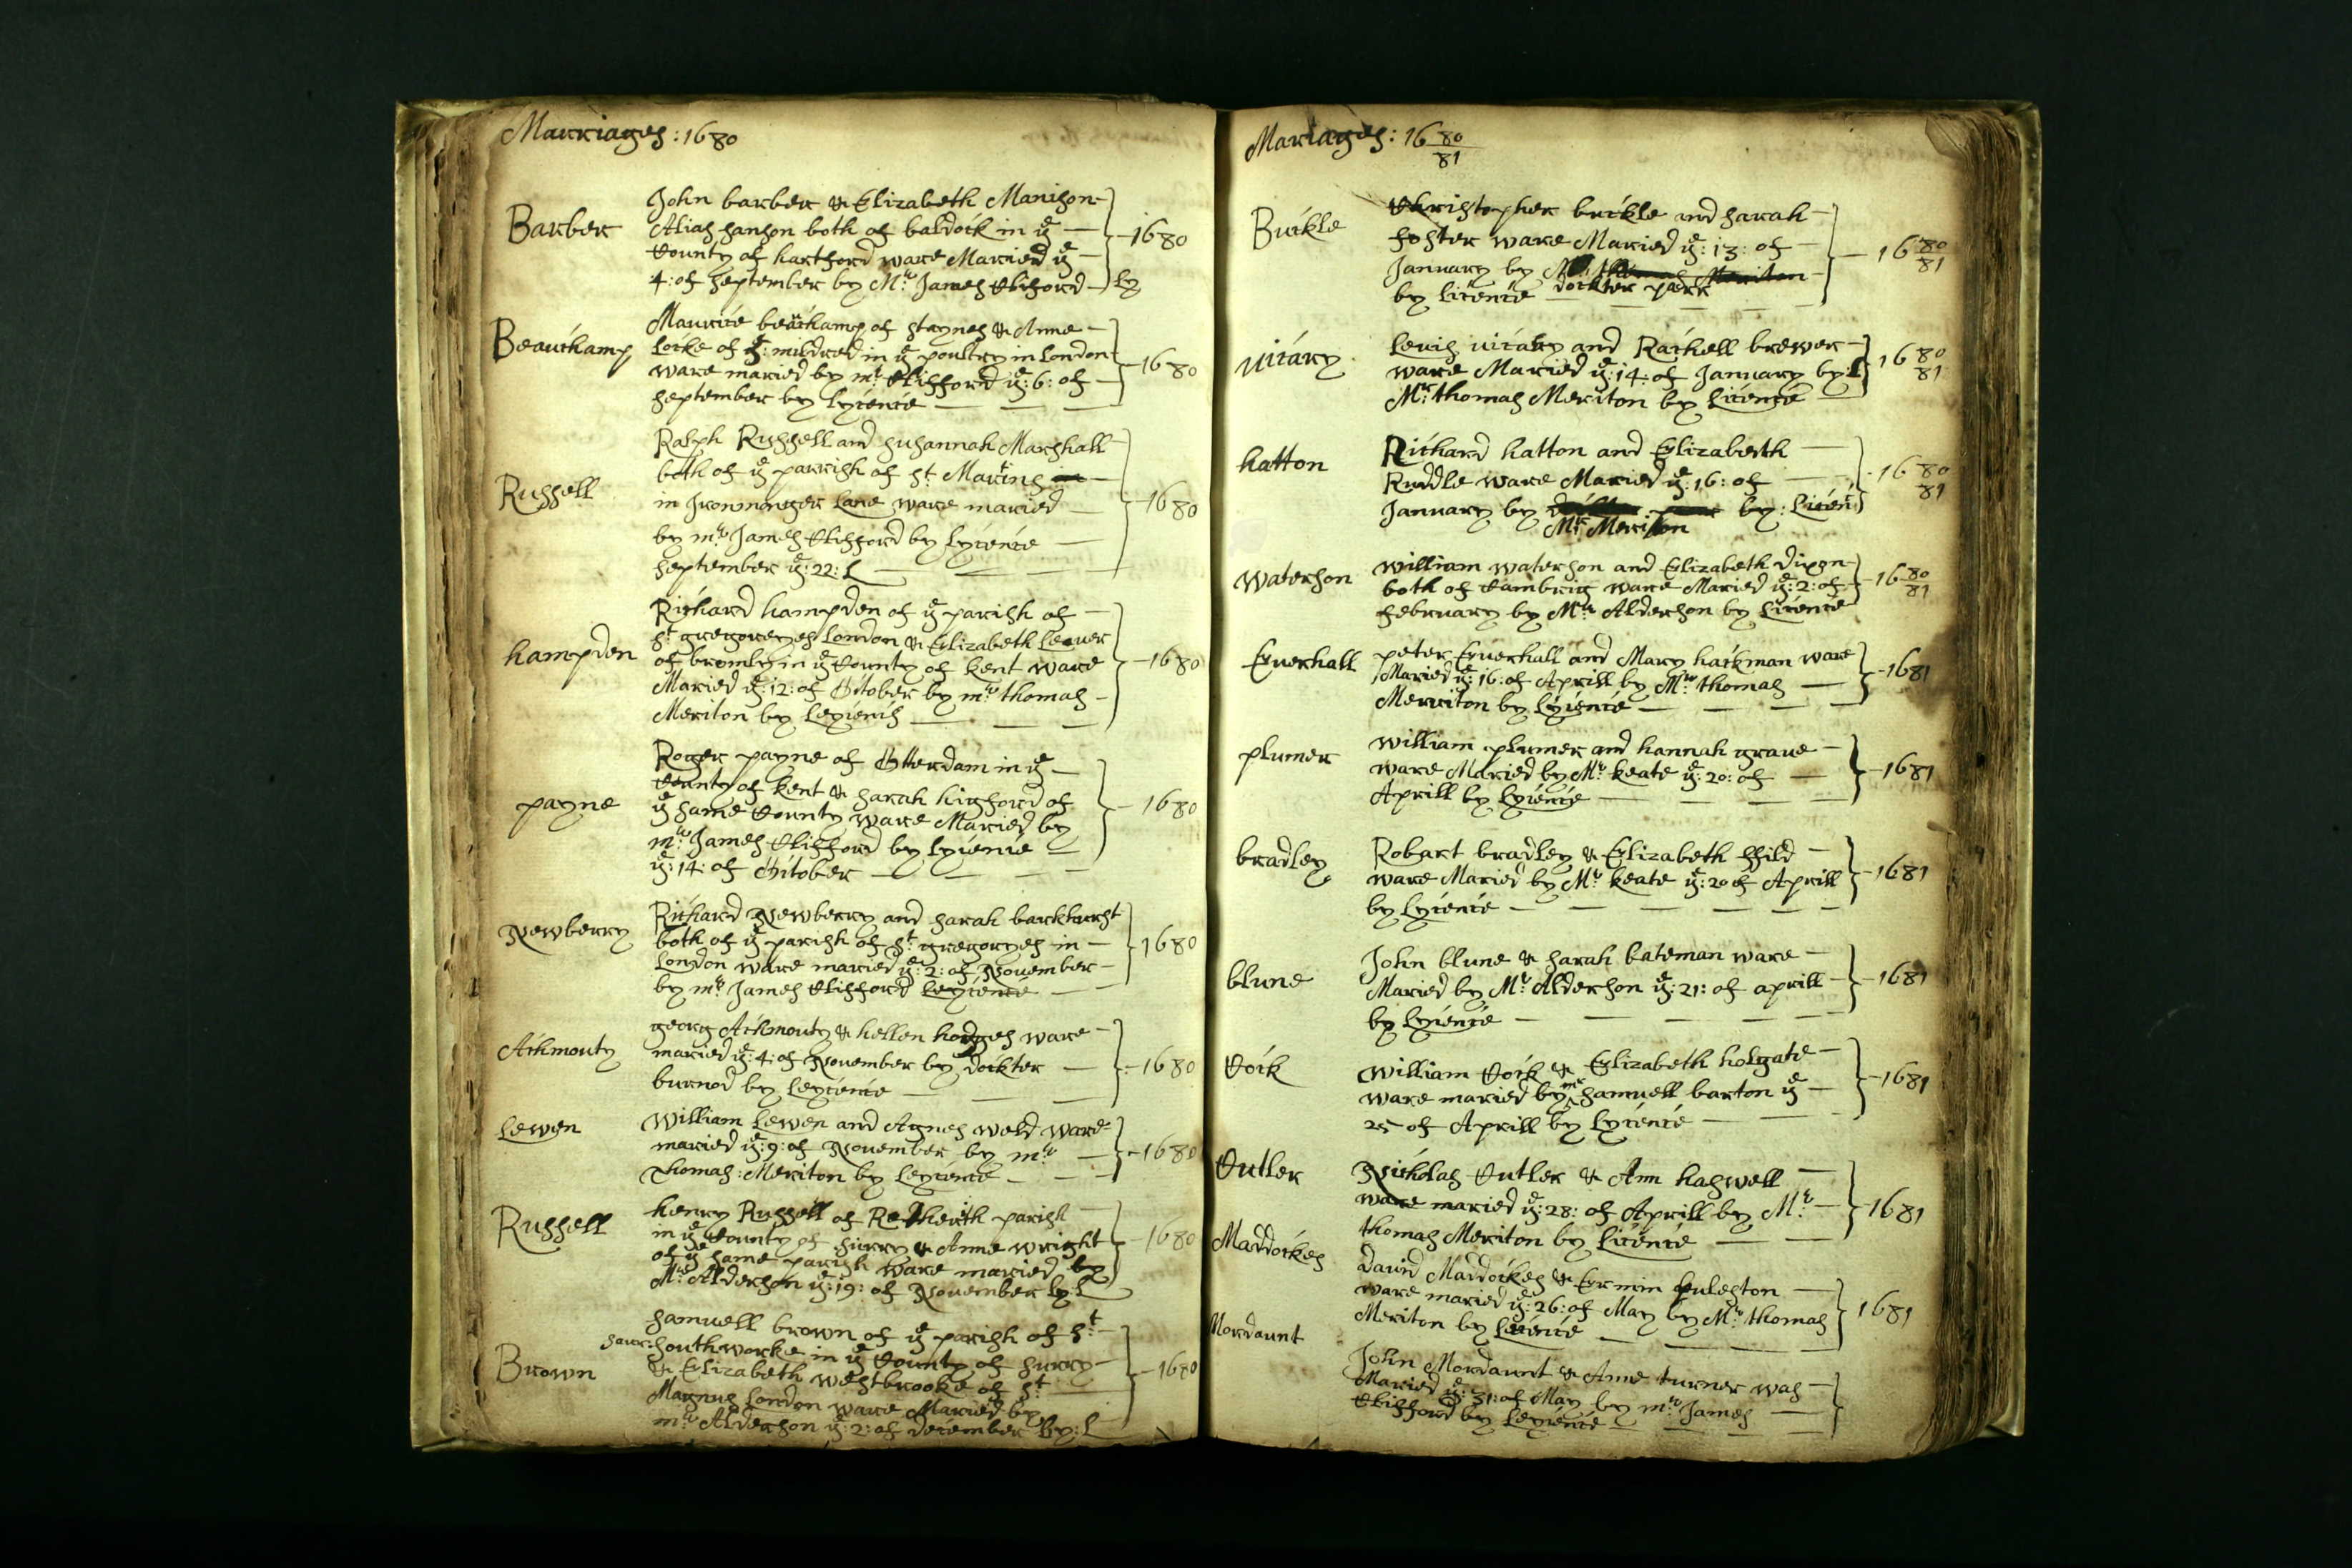 Marriages: 1680
Barber
John barber & Elizabeth Manison
Alias sanson both of baldock in ye
County of hartford ware Maried ye
4: of september by Mr James Clifford
by
1680
Beauchamp
Maurice beauchamp of staynes & Anne
Locke of s: mildred in ye poultry in London
ware maried by mr Clifford ye: 6: of
september by Lycence
1680
Russell
Ralph Russell and susannah Marshall
both of ye parrish of st Martins
in Ironmonger Lane ware maried
by mr James Clifford by Lycence
september ye: 22: L
1680
hampden
Richard hampden of ye parish of
st gregoreyes London & Elizabeth Leauer
of bromly in ye County of kent ware
Maried ye: 12: of October by mr thomas
Meriton by Leycencs
1680
payne
Roger payne of Otterdam in ye
County of kent & sarah higford of
ye same County ware Maried by
mr James Clifford by Lycence
ye: 14: of October
1680
Newberry
Richard Newberry and sarah barkhurst
both of ye parish of st gregoryes in
London ware maried ye: 2: of November
by mr James Clifford Leycence
1680
Ackmouty
georg Ackmouty & hellen hodges ware
maried ye: 4: of November by dockter
burned by Leycence
1680
Lewen
William Lewen and Agnes weld ware
maried ye: 9: of November by mr
Thomas: Meriton by Leycence
1680
Russell
henry Russell of Retherith parish
in ye County of surry & Anne wright
of ye same parish ware maried by
Mr Alderson ye: 19: of November by: L
1680
Brown
samuell brown of ye parish of st
southworke in ye County of surry
& Elizabeth westbrooke of st
Magnus London ware Maried by
mr Alderson ye: 2: of december by: L
1680
Mariages: 1680/81
Buckle
Christopher buckle and sarah
foster ware Maried ye: 13: of
January by
by Licence dockter park
1680/81
vicary
Lewis vicary and Rachell brewer
ware Maried ye: 14: of January by: L
Mr thomas Meriton by Licence
1680/81
hatton
Richard hatton and Elizabeth
Ruddle ware Maried ye: 16: of
January by by: Licen
Mr Meriton
1680/81
waterson
william waterson and Elizabeth dixon
both of Cambrig ware Maried ye: 2: of
february by Mr Alderson by Licence
1680/81
Euerhall
peter Euerhall and Mary hackman ware
Maried ye: 16: of Aprill by Mr thomas
Merriton by Lycence
1681
plumer
william plumer and hannah graue
ware Maried by Mr keate ye: 20: of
Aprill by Lycence
1681
bradley
Robart bradley & Elizabeth ffild
ware Maried by Mr keate ye: 20 of Aprill
by Lycence
1681
blune
John blune & sarah bateman ware
Maried by Mr Alderson ye: 21: of aprill
by Lycence
1681
Cock
william Cock & Elizabeth holgate
ware maried by mr samuell barton ye
25 of Aprill by Lycence
1681
Cutler
Nickolas Cutler & Ann haswell
ware maried ye: 28: of Aprill by Mr
thomas Meriton by Licence
1681
Maddockes
david Maddockes & Ermin puleston
ware maried ye: 26: of May by Mr thomas
Meriton by Licence
1681
Mordaunt
John Mordaunt & Anne turner was
Maried ye: 31: of May by mr James
Clifford by Leycence